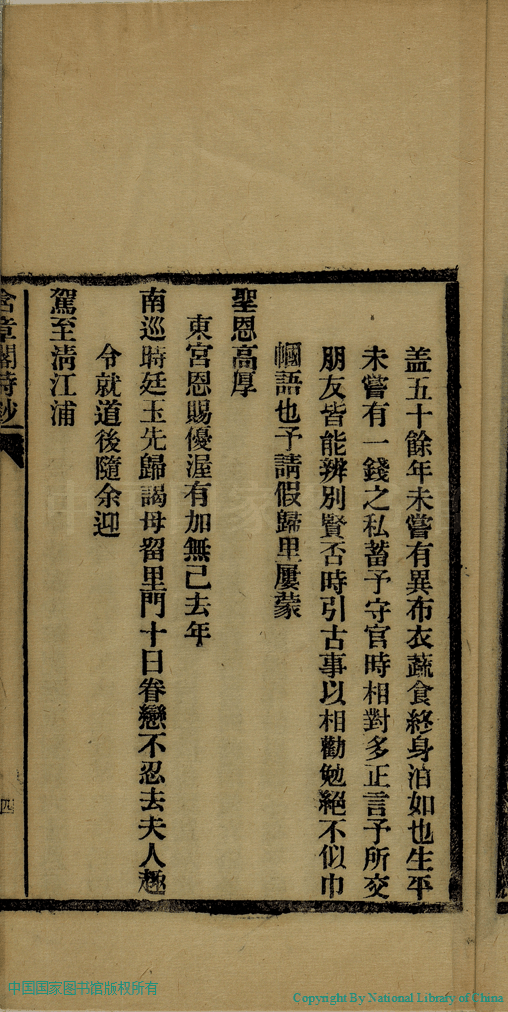 盖五十餘年未嘗有異布衣蔬食終身泊如也生平
未嘗有一錢之私蓄予守官時相對多正言予所交
朋友皆能辨別賢否時引古事以相勸勉絕不似巾
幗語也予請假歸里屢蒙
聖恩高厚
東宮恩賜優渥有加無已去年
南巡時廷玉先歸謁母留里門十日眷戀不忍去夫人趣
令就道後隨余迎
駕至清江浦
含章閣詩鈔
四
中国国家图书馆版权所有
Copyright By National Library of China